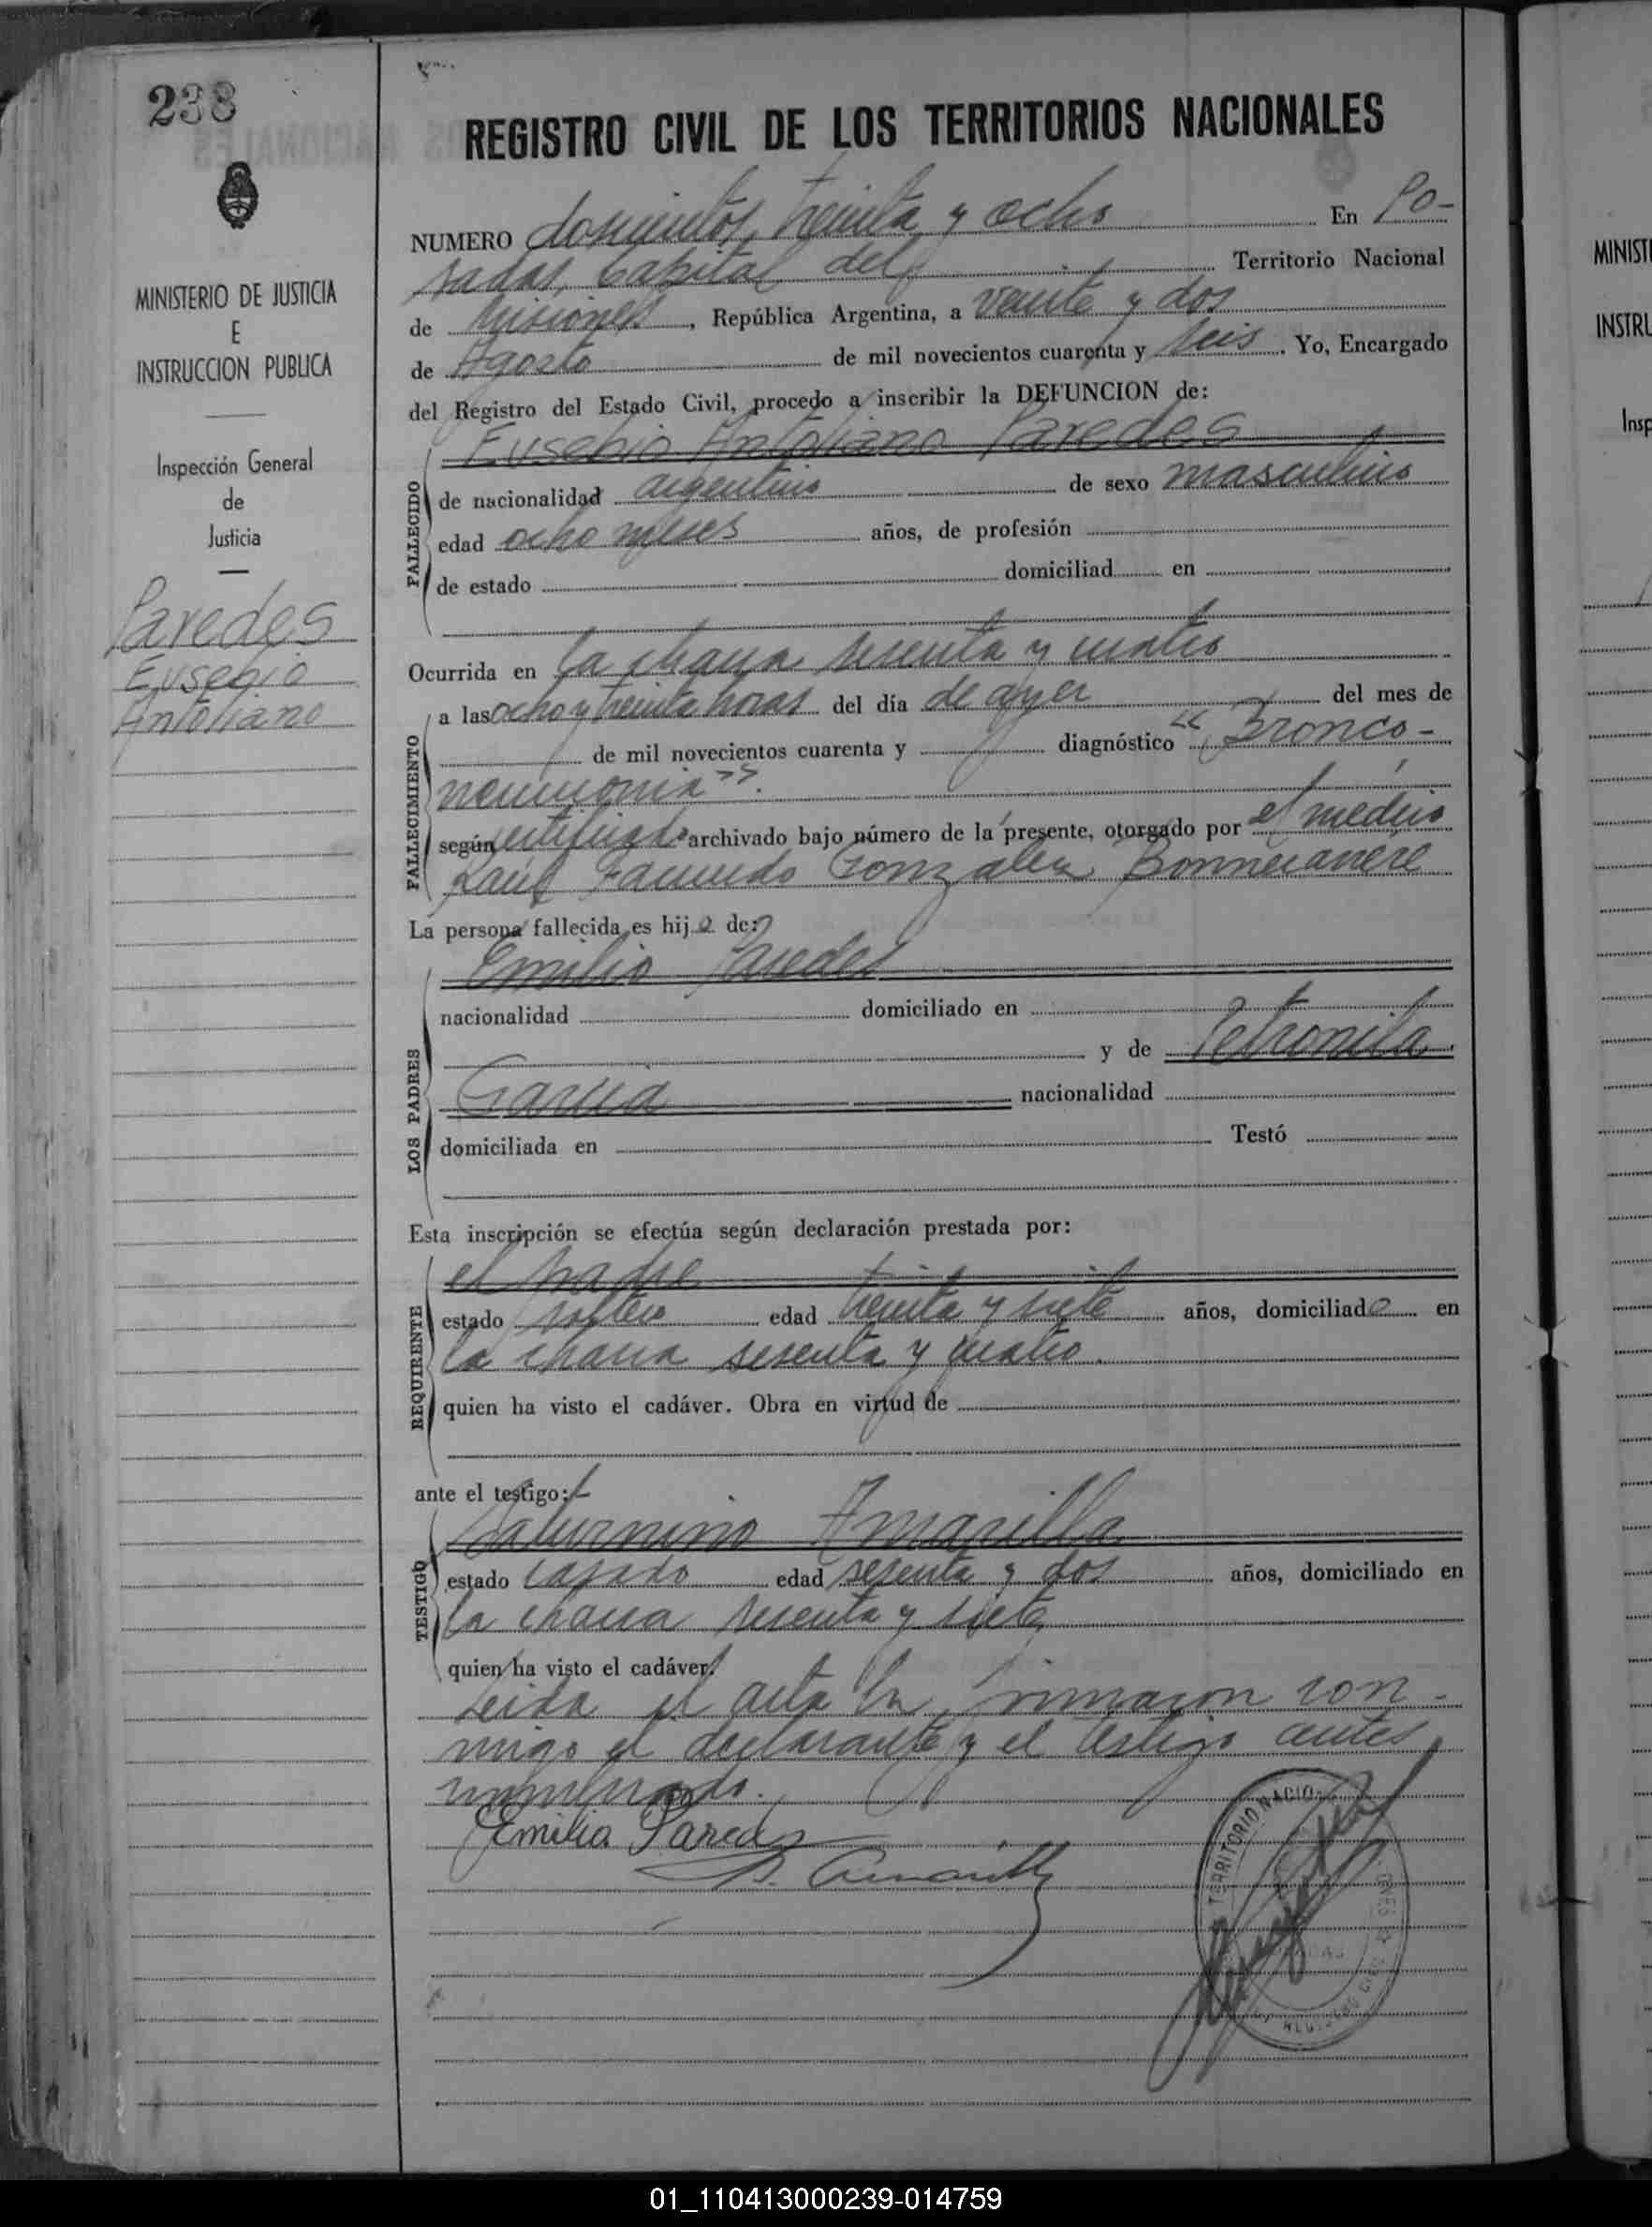 238
MINISTERIO DE JUSTICIA
E
INSTRUCCION PUBLICA
Inspección General
de
Justicia
Paredes
Eusebio
Antoliano
REGISTRO CIVIL DE LOS TERRITORIOS NACIONALES
NUMERO doscientos treinta y ocho En Po-
sadas, Capital del Territorio Nacional
de Misiones, República Argentina, a veinte y dos
de Agosto de mil novecientos cuarenta y seis. Yo, Encargado
del Registro del Estado Civil, procedo a inscribir la DEFUNCION de:
Eusebio Antoliano Paredes
FALLECIDO
de nacionalidad argentino de sexo masculino
edad ocho meses años, de profesión
de estado domiciliad en
Ocurrida en la chacra sesenta y cuatro
FALLECIMIENTO
a las ocho y treinta horas del día de ayer del mes de
de mil novecientos cuarenta y diagnóstico "Bronco-
neumonia".
según certificado archivado bajo número de la presente, otorgado por el médico
Raúl Facundo Gonzalez
La persona fallecida es hijo de:
LOS PADRES
Emilio Paredes
nacionalidad domiciliado en
y de Petronila
Garcia nacionalidad
domiciliada en Testó
Esta inscripción se efectúa según declaración prestada por:
REQUIRENTE
el padre
estado soltero edad treinta y siete años, domiciliado en
la chacra sesenta y cuatro.
quien ha visto el cadáver. Obra en virtud de
ante el testigo:-
TESTIGO
Saturnino Amarilla
estado casado edad sesenta y dos años, domiciliado en
la chacra sesenta y siete
quien ha visto el cadáver.
Leida el acta la firmaron con-
migo el declarante y el testigo antes
nombrado.
Emilio Paredes
S. Amarilla
TERRITORIO NACIO
01_110413000239-014759